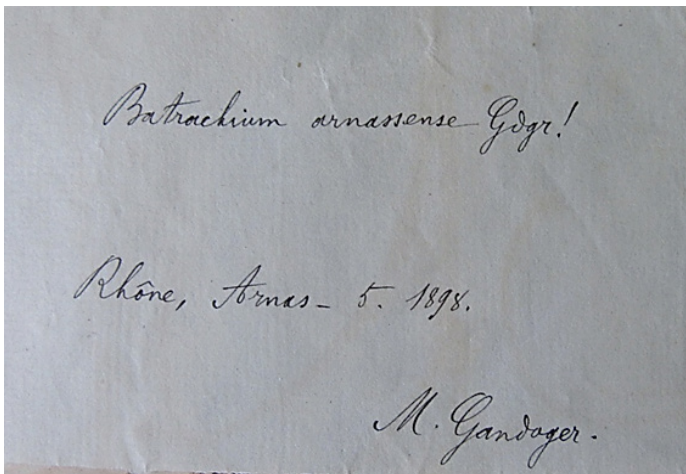 Batrachium arnassense Gdgr!
Rhône, Arnas - 5. 1898.
M. Gandoger.